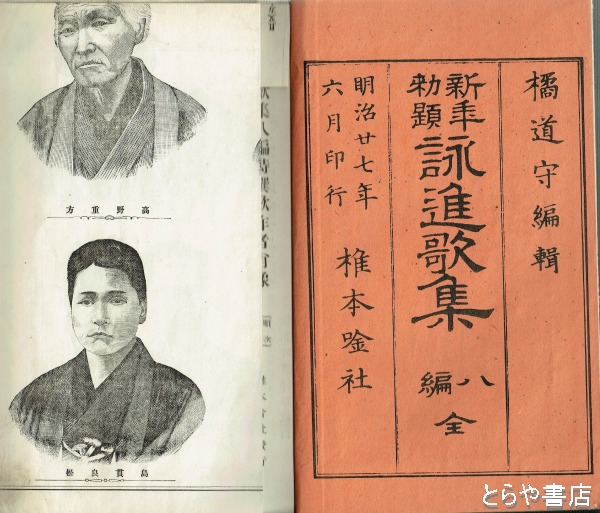 橘道守編輯
新年勅題
詠進歌集
八編
全
明治廿七年
六月印行
椎本唫社
高野重方
島貫良松
とらや書店